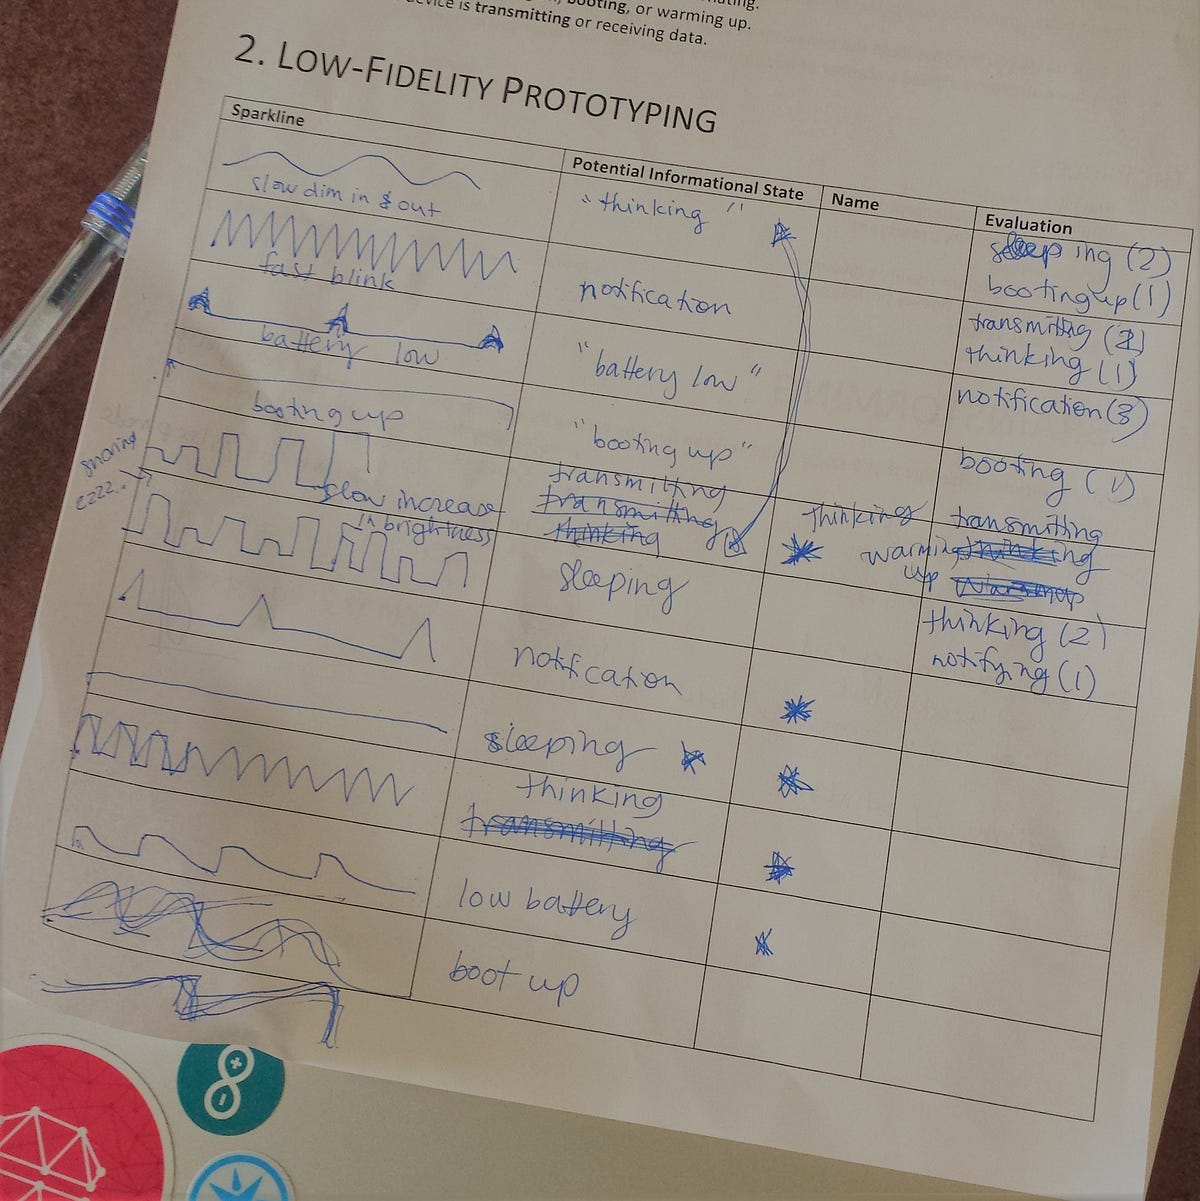 booting, or warming up.
device is transmitting or receiving data.
2. LOW-FIDELITY PROTOTYPING
Sparkline
Potential Informational State
Name
Evaluation
slow dim in & out
"thinking"
sleeping (2)
booting up (1)
fast blink
notification
transmitting (2)
thinking (1)
battery low
"battery low"
notification (3)
booting up
"booting up"
booting (1)
snoring
zzzz..
slow increase
in brightness
transmitting
transmitting
thinking
Thinking
transmitting
warming
up
thinking
sleeping
thinking (2)
notifying (1)
notification
sleeping
thinking
transmitting
low battery
boot up